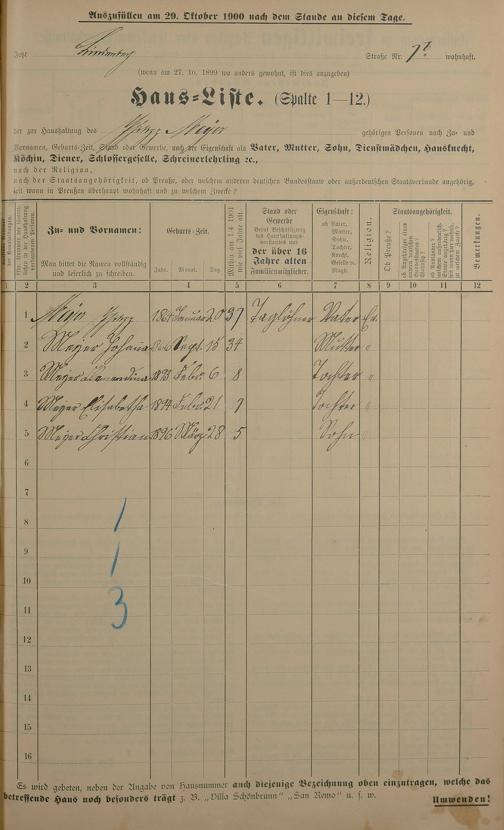 Auszufüllen am 29. Oktober 1900 nach dem Stande an diesem Tage.
Jetzt Lindenberg Straße Nr. wohnhaft.
(wenn am 27. 10. 1899 wo anders gewohnt, ist dies anzugeben)
Haus-Liste. (Spalte 1—12.)
der zur Haushaltung des Meyer gehörigen Personen nach Zu- und
Vornamen, Geburts-Zeit, Stand oder Gewerbe, nach der Eigenschaft als Vater, Mutter, Sohn, Dienstmädchen, Hausknecht,
Köchin, Diener, Schlossergeselle, Schreinerlehrling ꝛc.,
nach der Religion,
nach der Staatsangehörigkeit, ob Preuße, oder welchem anderen deutschen Bundesstaate oder außerdeutschen Staatsverbande angehörig,
seit wann in Preußen überhaupt wohnhaft und zu welchem Zwecke?
Zu- und Vornamen:
Man bittet die Namen vollständig
und leserlich zu schreiben.
Geburts-Zeit.
Jahr. Monat. Tag.
Mithin am 1/4 1901
wie viel Jahre alt.
Stand oder
Gewerbe
der über 16
Jahre alten
Familienmitglieder.
Eigenschaft:
ob Vater,
Mutter,
Sohn,
Tochter,
Knecht,
Geselle o.
Magd.
Religion.
Staatsangehörigkeit.
Ob Preuße?
Bemerkungen.
1 2 3 4 5 6 7 8 9 10 11 12
1 Meyer 1864 Januar 20 37 Taglöhner Vater Ev.
2 Meyer Johanna Sept. 15 34 Mutter "
3 Meyer Febr. 6 8 Tochter "
4 Meyer Elisabetha 1894 Febr. 21 7 Tochter "
5 Meyer Christian 1896 März 28 5 Sohn "
6
7
8 1
9
1
10
11 3
12
13
14
15
16
Es wird gebeten, neben der Angabe von Hausnummer auch diejenige Bezeichnung oben einzutragen, welche das
betreffende Haus noch besonders trägt z. B. „Villa Schönbrunn" „San Remo" u. s. w. Umwenden!